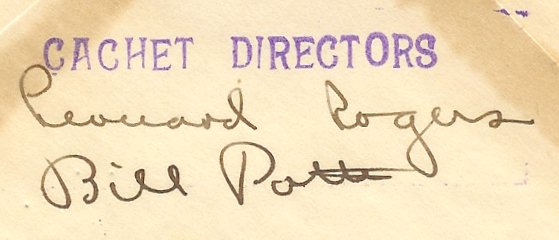 CACHET DIRECTORS
Leonard Rogers
Bill Pott